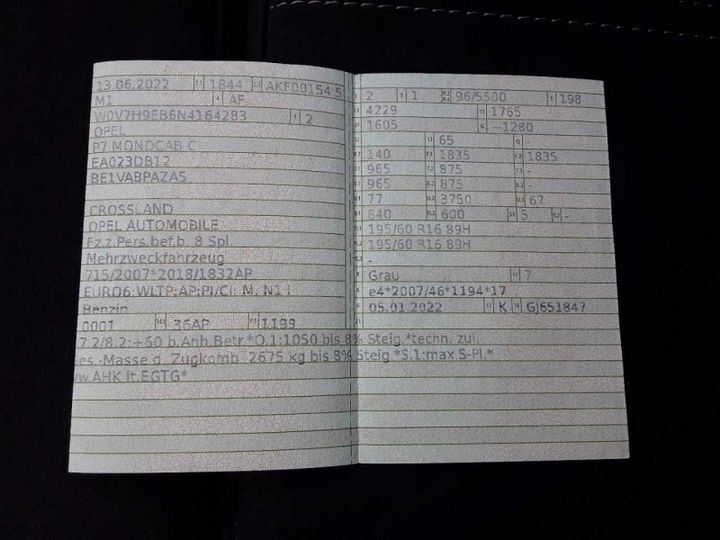 13.06.2022 2.1 1844 2.2 AKF00154 5
M1 4 AF
W0V7H9EB6N4164283 3 2
OPEL
P7 MONOCAB C
EA023DB12
BE1VABPAZA5
CROSSLAND
OPEL AUTOMOBILE
Fz.z.Pers.bef.b. 8 Spl.
Mehrzweckfahrzeug
715/2007*2018/1832AP
EURO6;WLTP;AP;PI/CI; M, N1 I
Benzin
0001 36AP 1199
7.2/8.2:+60 b.Anh.Betr.*O.1:1050 bis 8% Steig.*techn. zul
es.-Masse d. Zugkomb. 2675 kg bis 8% Steig.*S.1:max.S-Pl.*
w.AHK lt.EGTG*
2 1 96/5500 198
4229 1765
1605 --1280
65 -
140 1835 1835
965 875 -
965 875 -
77 3750 67
840 600 5 -
195/60 R16 89H
195/60 R16 89H
-
Grau 7
e4*2007/46*1194*17
05.01.2022 K GJ651847